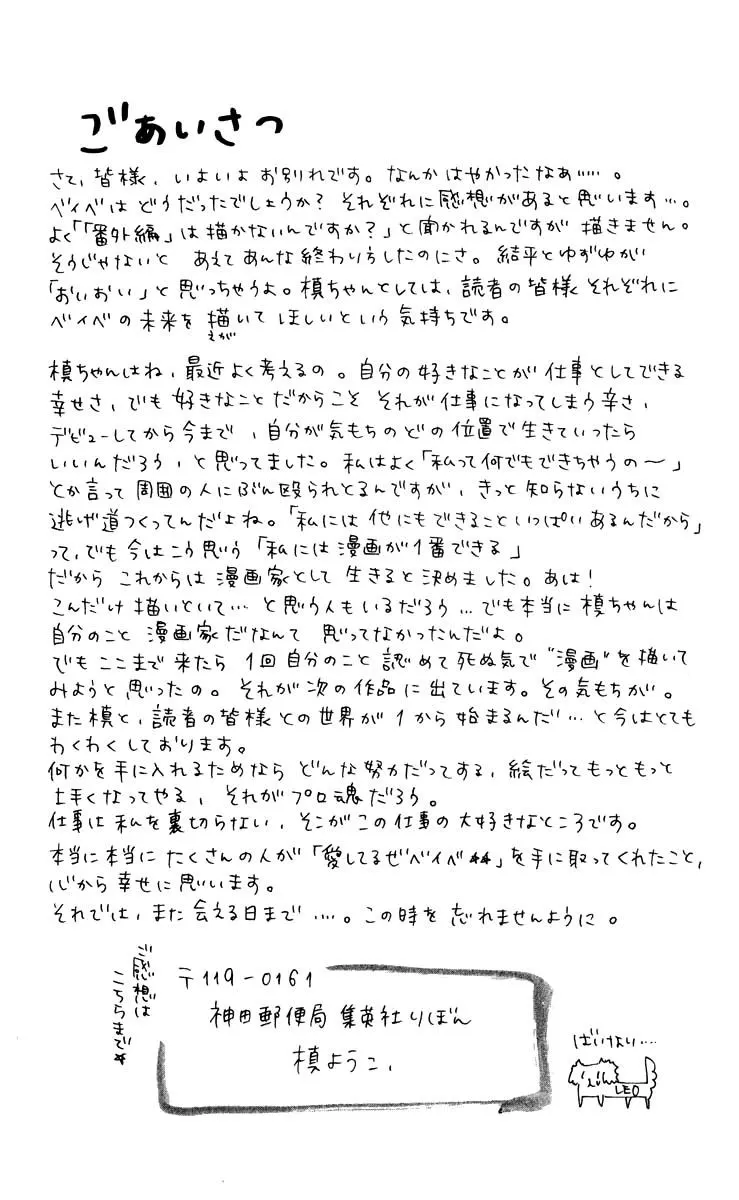 ごあいさつ
さて、皆様、いよいよお別れです。なんかはやかったなぁ……。
ベイベはどうだったでしょうか？それぞれに感想があると思います…。
よく「「番外編」は描かないんですか？」と聞かれるんですが描きません。
そうじゃないと あえてあんな終わりうしたのにさ。結平とゆずゆが
「おいおい」と思っちゃうよ。槙ちゃんとしては、読者の皆様それぞれに
ベイベの未来を描いてほしいという気持ちです。
えが
槙ちゃんはね、最近よく考えるの。自分の好きなことが仕事としてできる
幸せさ、でも好きなことだからこそ それが仕事になってしまう辛さ、
デビューしてから今まで、自分が気もちのどの位置で生きていったら
いいんだろう、と思ってました。私はよく「私って何でもできちゃうの〜」
とか言って周囲の人にぶん殴られとるんですが、きっと知らないうちに
逃げ道つくってんだよね。「私には他にもできることいっぱいあるんだから」
って、でも今はこう思う「私には漫画が1番できる」
だから これからは漫画家として生きると決めました。あは！
こんだけ描いといて…と思う人もいるだろう…でも本当に槙ちゃんは
自分のこと 漫画家だなんて 思ってなかったんだよ。
でもここまで来たら 1回自分のこと認めて死ぬ気で“漫画”を描いて
みようと思ったの。それが次の作品に出ています。その気もちが。
また槙と、読者の皆様との世界が1から始まるんだ…と今はとても
わくわくしております。
何かを手に入れるためなら どんな努力だってする、絵だってもっともっと
上手くなってやる、それがプロ魂だろう。
仕事は私を裏切らない、そこがこの仕事の大好きなところです。
本当に本当にたくさんの人が「愛してるぜベイベ★★」を手に取ってくれたこと、
心から幸せに思います。
それでは、また会える日まで……。この時を忘れませんように。
ご感想は
こちらまで★
〒119-0161
神田郵便局 集英社りぼん
槙ようこ、
ばいけより……
LEO